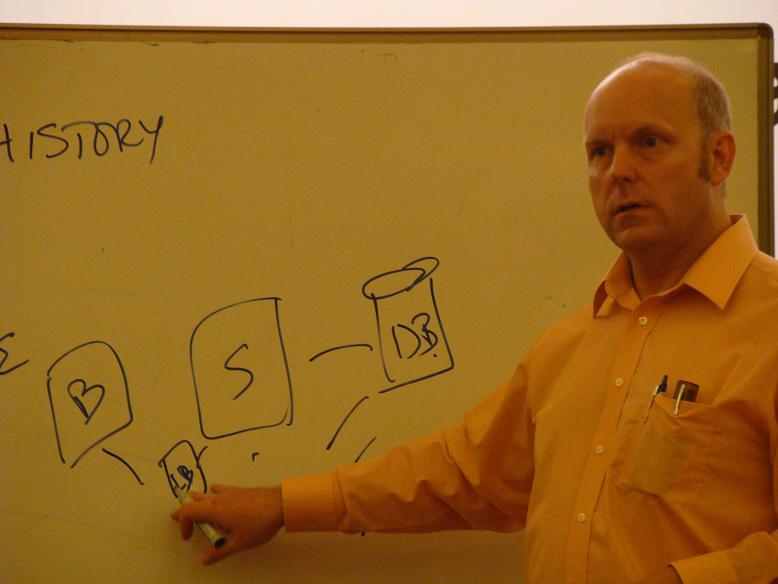 HISTORY
B S DB